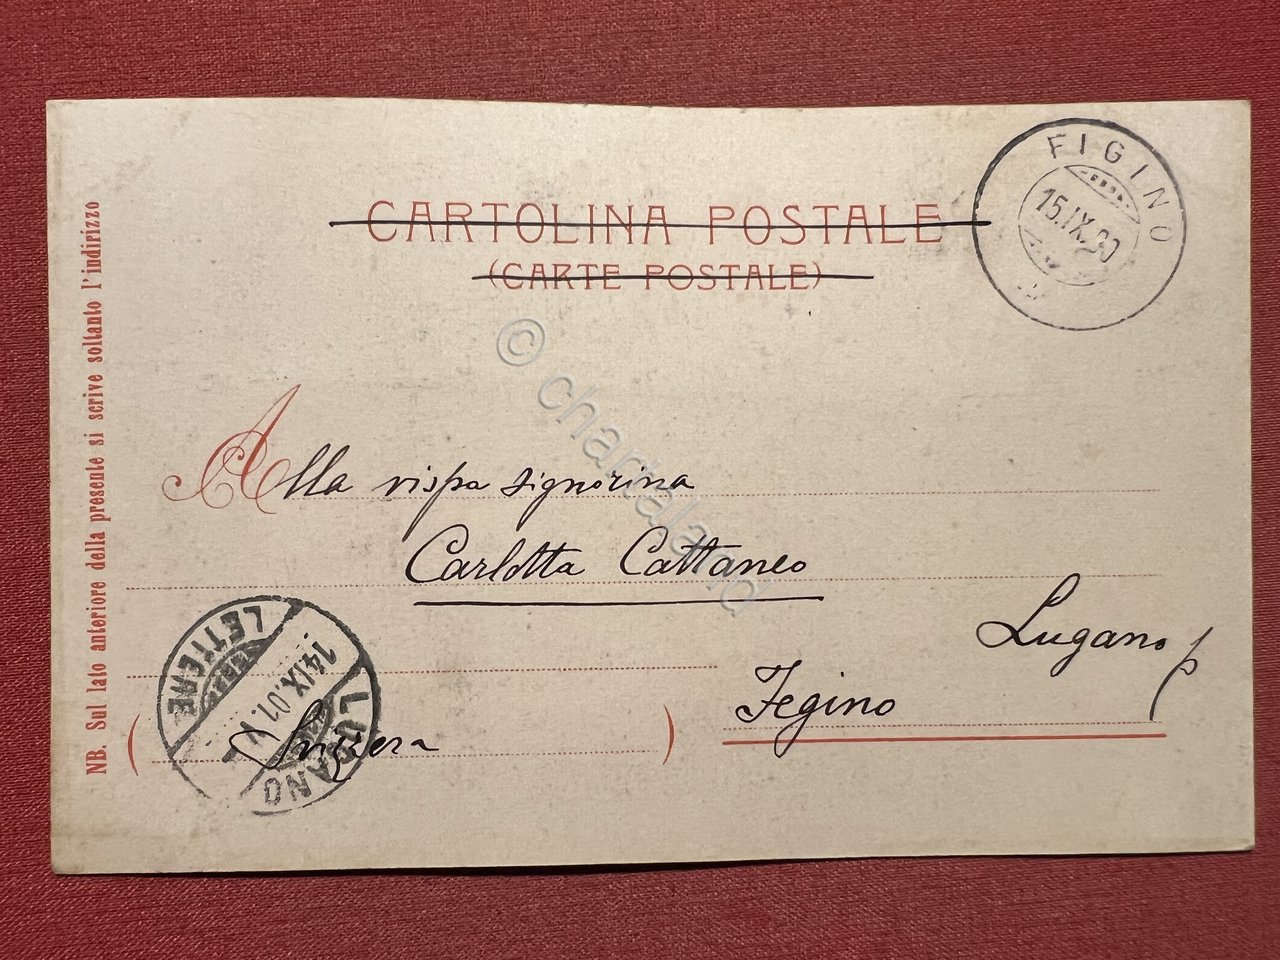 CARTOLINA POSTALE
(CARTE POSTALE)
FIGINO
15.IX.90
NB. Sul lato anteriore della presente si scrive soltanto l'indirizzo
© chartaland
Alla vispa signorina
Carlotta Cattaneo
Lugano p
Fegino
(Svizzera)
LETTERE
14.IX.01.V
LUGANO